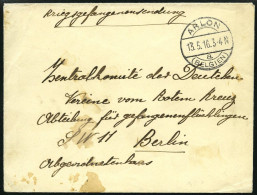 Kriegsgefangenensendung
ARLON
13.5.16.3-4N
a
(BELGIEN)
Zentralkomité der Deutschen
Vereine vom Roten Kreuz
Abteilung für Gefangenenflüchtlingen
SW 11 Berlin
Abgeordnetenhaus